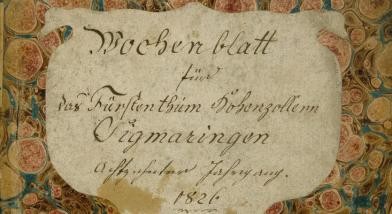 Wochenblatt
für
das Fürstenthum Hohenzollern
Sigmaringen
Achtzehnter Jahrgang.
1826